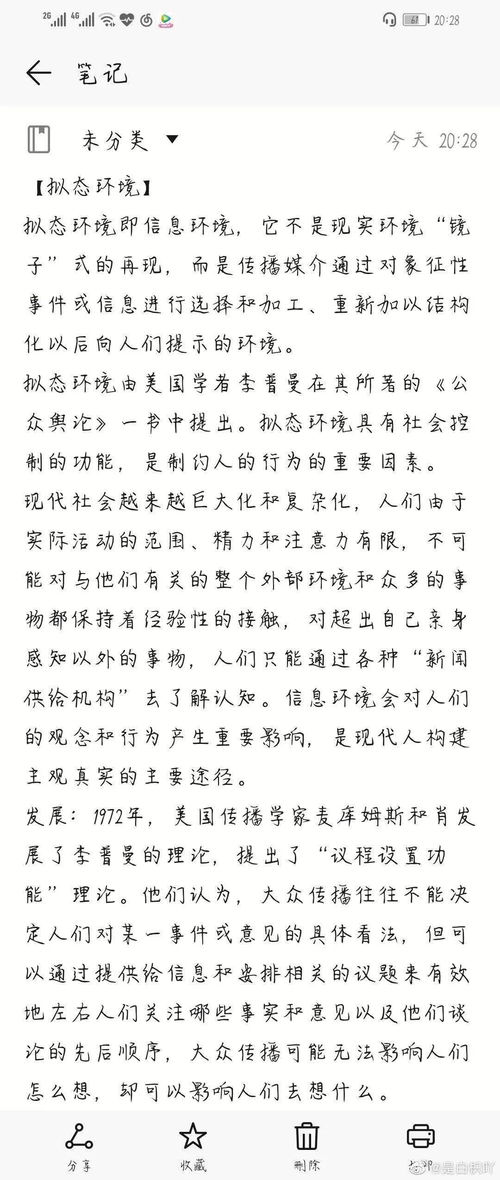 2G 4G 61 20:28
笔记
未分类 今天 20:28
【拟态环境】
拟态环境即信息环境，它不是现实环境“镜
子”式的再现，而是传播媒介通过对象征性
事件或信息进行选择和加工、重新加以结构
化以后向人们提示的环境。
拟态环境由美国学者李普曼在其所著的《公
众舆论》一书中提出。拟态环境具有社会控
制的功能，是制约人的行为的重要因素。
现代社会越来越巨大化和复杂化，人们由于
实际活动的范围、精力和注意力有限，不可
能对与他们有关的整个外部环境和众多的事
物都保持着经验性的接触，对超出自己亲身
感知以外的事物，人们只能通过各种“新闻
供给机构”去了解认知。信息环境会对人们
的观念和行为产生重要影响，是现代人构建
主观真实的主要途径。
发展：1972年，美国传播学家麦库姆斯和肖发
展了李普曼的理论，提出了“议程设置功
能”理论。他们认为，大众传播往往不能决
定人们对某一事件或意见的具体看法，但可
以通过提供给信息和安排相关的议题来有效
地左右人们关注哪些事实和意见以及他们谈
论的先后顺序，大众传播可能无法影响人们
怎么想，却可以影响人们去想什么。
分享 收藏 删除
@是白枳吖